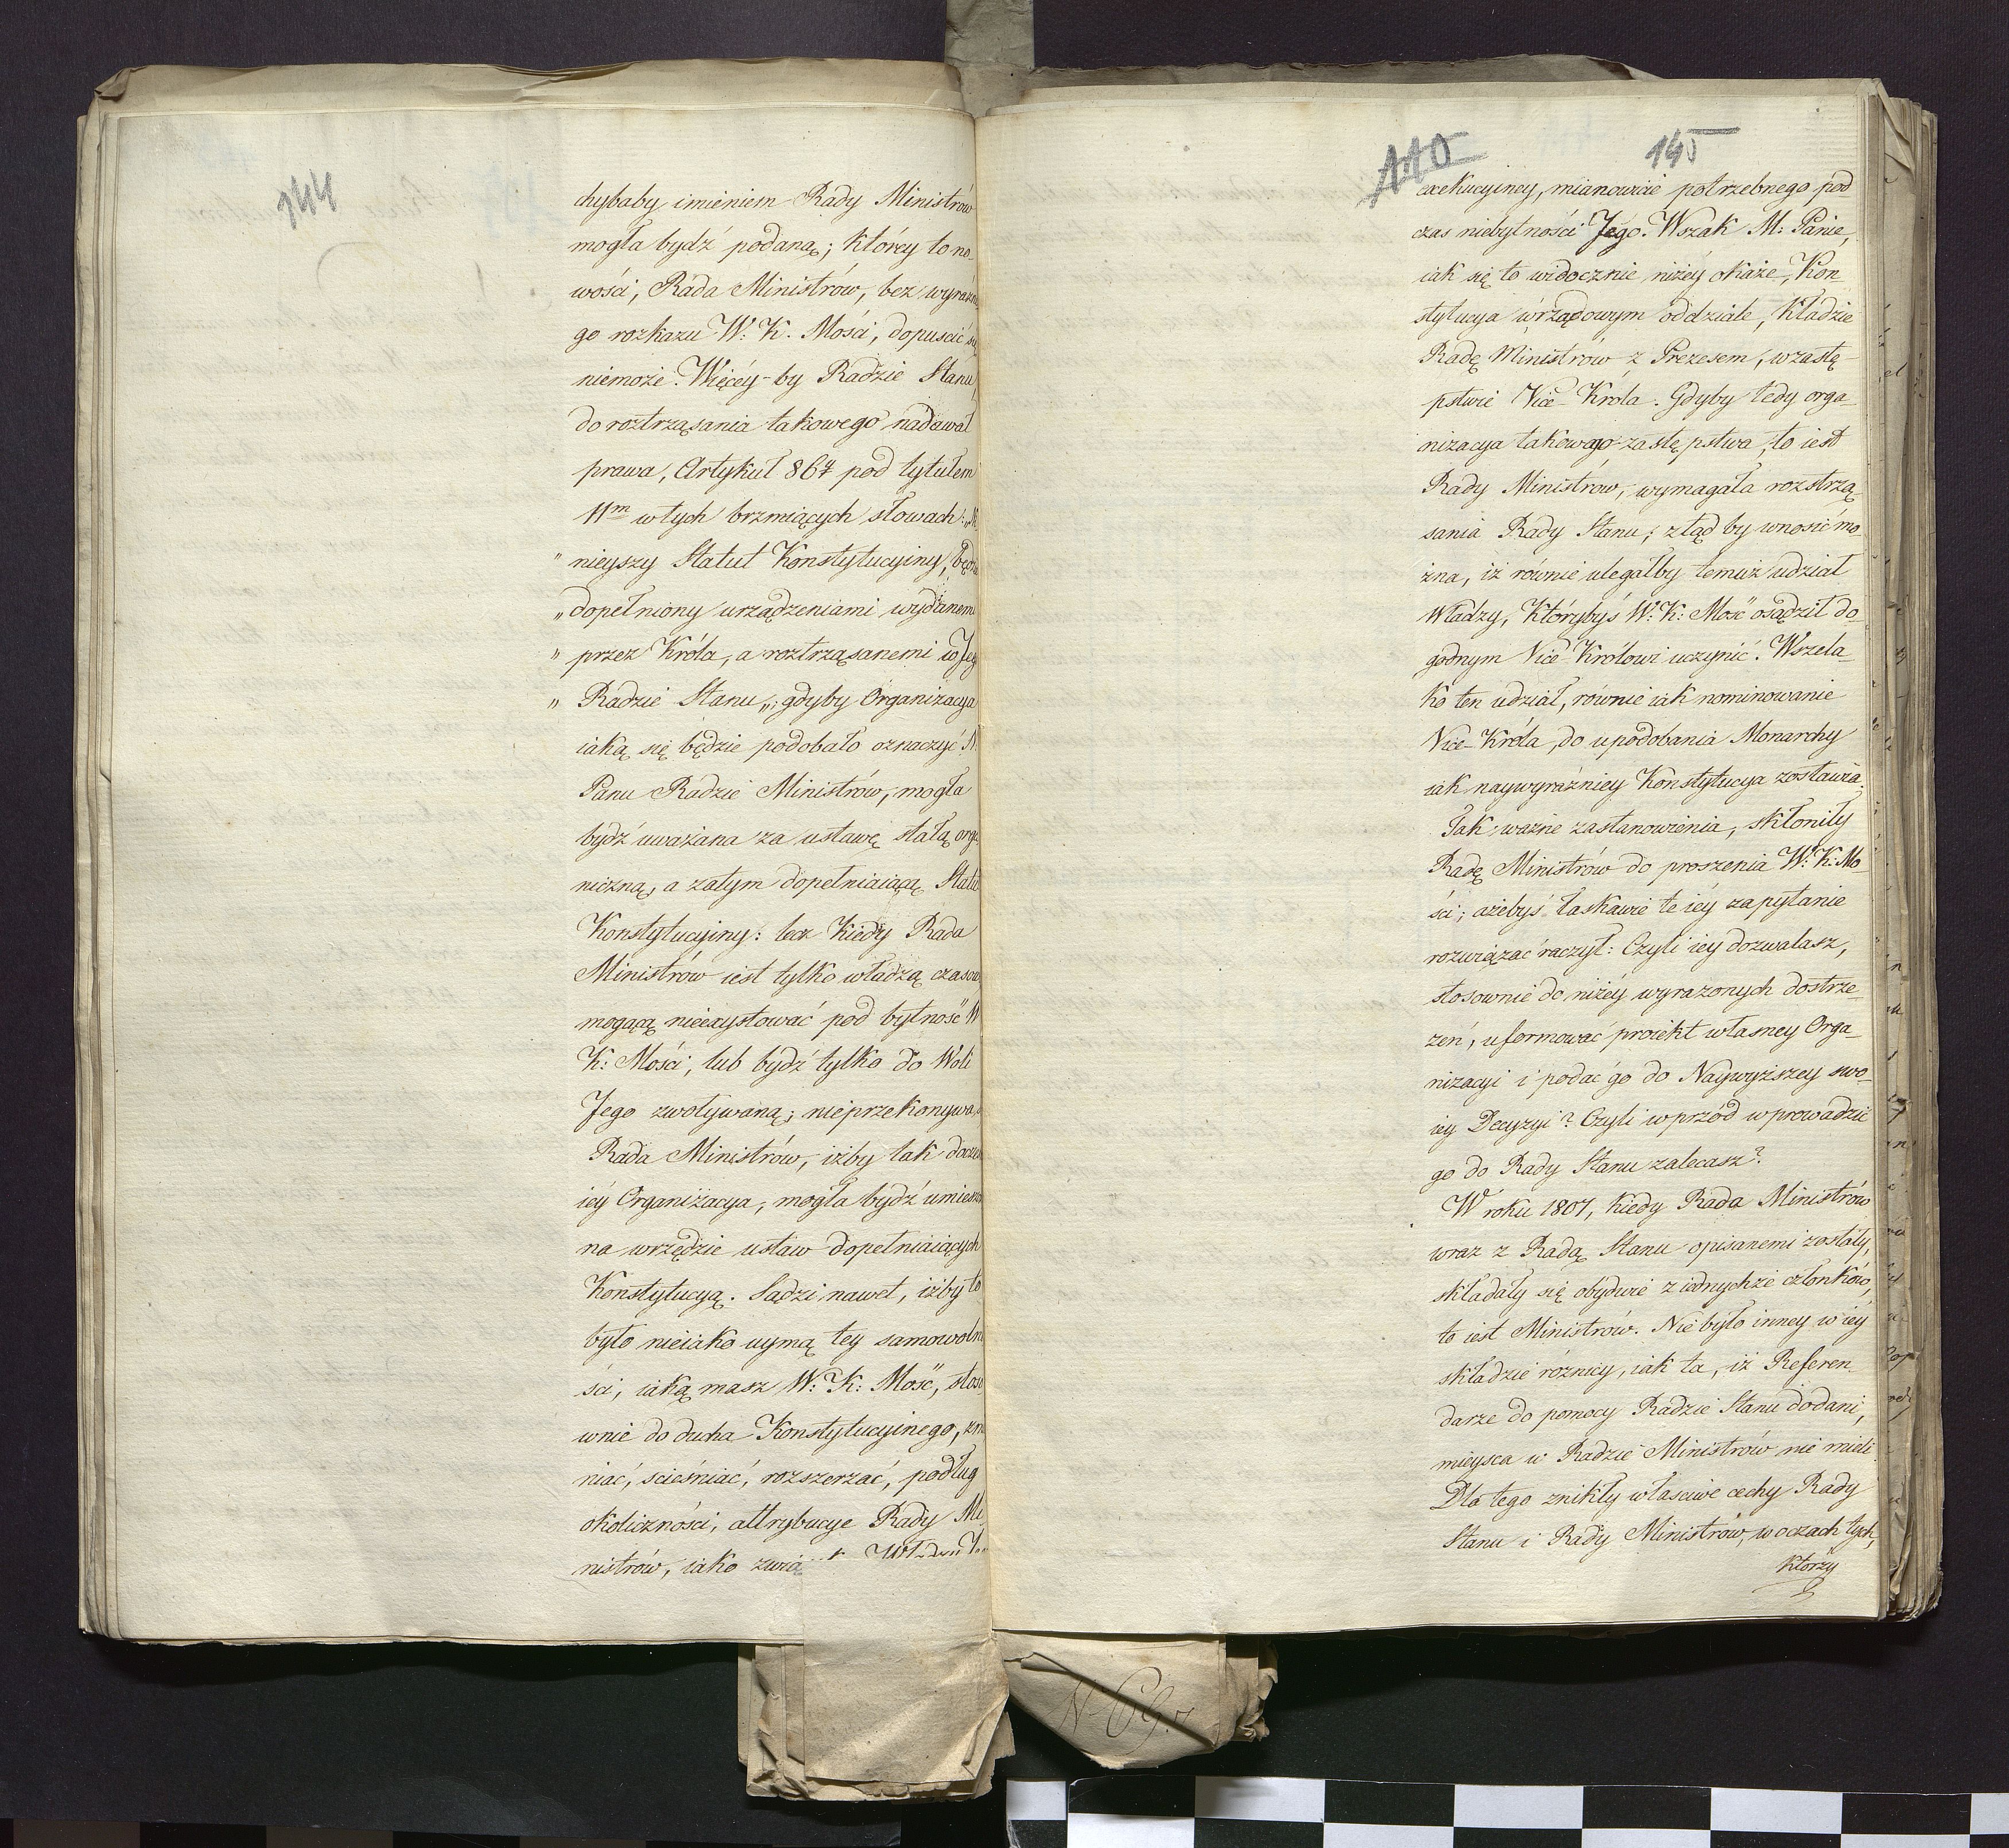 144
chybaby imieniem Rady Ministrów
mogła bydź podaną; którey to no-
wości, Rada Ministrów, bez wyraźne
go rozkazu W: K. Mości, dopuścić się
niemoże. Więcéy-by Radzie Stanu,
do roztrząsania takowego nadawał
prawa, Artykuł 86ty pod tytułem
11m w tych brzmiących słowach: „
" nieyszy Statut Konstytucyiny, będzie
„ dopełniony urządzeniami wydanemi
" przez Króla, a roztrząsanemi w Jego
" Radzie Stanu„; gdyby Organizacya
iaką się będzie podobało oznaczyć N.
Panu Radzie Ministrów, mogła
bydź uważana za ustawę stałą orga
niczną, a zatym dopełniaiącą Statut
Konstytucyiny: lecz kiedy Rada
Ministrów iest tylko władzą czasową
mogącą nieexystować pod bytność W
K: Mości, lub bydź tylko do Woli
Jego zwoływaną; nieprzekonywa
Rada Ministrów, iżby tak
iéy Organizacya, mogła bydź umieszczo
na w rzędzie ustaw dopełniaiących
Konstytucyą. Sądzi nawet, iżby to
było nieiako uymą tey samowolno
ści, iaką masz W: K: Mość, stoso
wnie do ducha Konstytucyinego, zmie
niać, scieśniać, rozszerzać, podług
okoliczności, attrybucye Rady Mi
nistrów, iako
110 145
exekucyiney, mianowicie potrzebnego pod
czas niebytności Jego. Wszak M: Panie,
iak się to widocznie niżéy okaże, Kon
stytucya w rządowym oddziale, kładzie
Radę Ministrów z Prezesem, w zastę-
pstwie Vice-Króla. Gdyby tedy orga
nizacya takowego zastępstwa, to iest
Rady Ministrów, wymagała rozstrzą
sania Rady Stanu; ztąd by wnosić mo
żna, iż równie ulegałby temuż udział
Władzy, którybyś W: K: Mość osądził do
godnym Vice-Królowi uczynić. Wszela-
ko ten udział, równie iak nominowanie
Vice-Króla, do upodobania Monarchy
iak naywyraźniey Konstytucya zostawia.
Tak ważne zastanowienia, skłoniły
Radę Ministrów do proszenia W: K: Mo
ści; ażebyś łaskawie te iéy zapytanie
rozwiązać raczył: Czyli iey dozwalasz,
stosownie do niżéy wyrażonych dostrze-
żeń, uformować proiekt własney Orga-
nizacyi i podać go do Naywyższey swo-
iey Decyzyi? Czyli wprzód wprowadzić
go do Rady Stanu zalecasz?
W roku 1807, kiedy Rada Ministrów
wraz z Radą Stanu opisanemi zostały,
składały się obydwie z iednychże członków,
to iest Ministrów. Nie było inney w iéy
składzie różnicy, iak ta, iż Referen-
darze do pomocy Radzie Stanu dodani,
mieysca w Radzie Ministrów nie mieli
Dla tego znikły właściwe cechy Rady
Stanu i Rady Ministrów, w oczach tych,
którzy